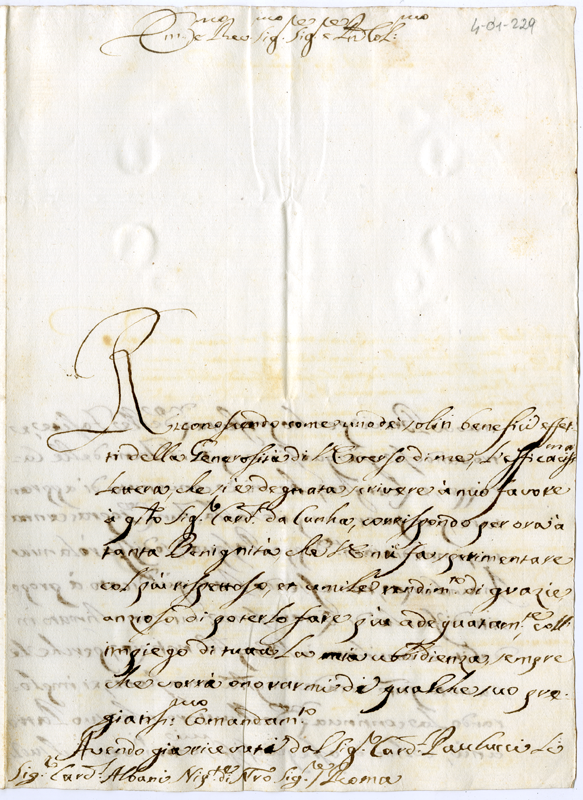 4-01-229
Em.mo e R.mo Sig.re Sig.re
Riconoscendo come uno de soliti benefici effet-
ti della Generosità di V.E. verso di me, l'efficaciss.ma
Lettera che si è degnata scrivere à mio favore
à q.to Sig.r Card. da Cunha, corrispondo per ora à
tanta Benignità che V. Em.a fa sperimentare
col più rispettoso, et umile rendim.to di grazie
ansioso di poterlo fare più adequatam.te coll'
impiego di tutta la mia ubbidienza, sempre
che vorrà onorarmi di qualche suo pre-
giatiss.mo Comandam.to
Avendo già ricevuti dal Sig.r Card. Paulucci le
Sig.r Card. Albani Nip.te di N'ro Sig.re / Roma